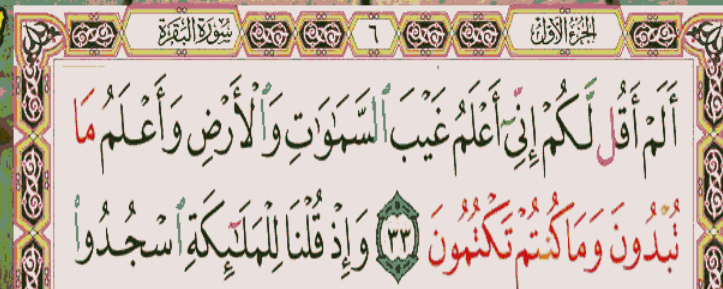 الجزء الأول ٦ سورة البقرة
أَلَمْ أَقُل لَّكُمْ إِنِّيٓ أَعْلَمُ غَيْبَ ٱلسَّمَٰوَٰتِ وَٱلْأَرْضِ وَأَعْلَمُ مَا
تُبْدُونَ وَمَا كُنتُمْ تَكْتُمُونَ ٣٣ وَإِذْ قُلْنَا لِلْمَلَٰٓئِكَةِ ٱسْجُدُوا۟